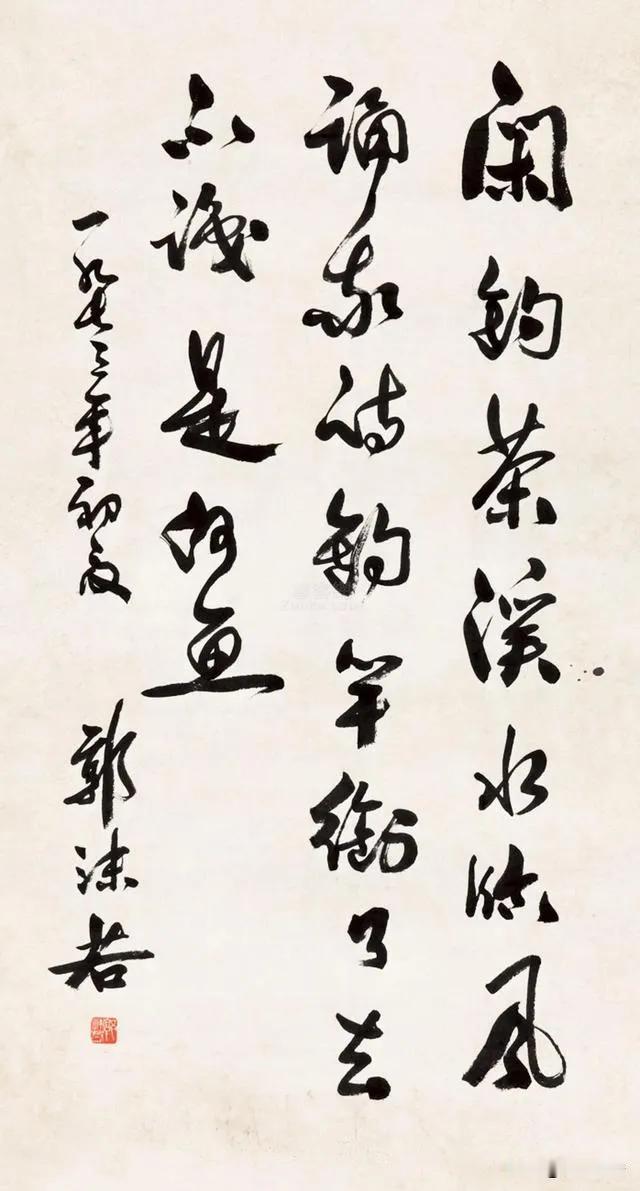 闲钓茶溪水临风
诵我诗钓竿衔了去
不识是何鱼
一九七三年初夏
郭沫若